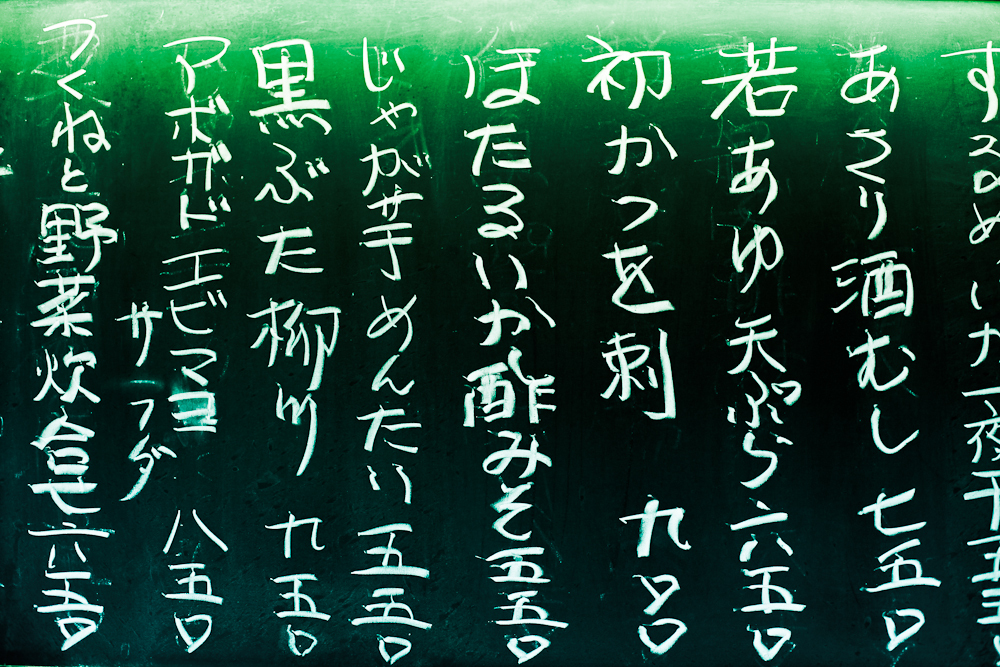 するめいか一夜干五
あさり酒むし 七五〇
若あゆ天ぷら 六五〇
初かつを刺 九〇〇
ほたるいか酢みそ五五〇
じゃが芋めんたい五五〇
黒ぶた柳川 九五〇
アボガドエビマヨ 八五〇
サラダ
つくねと野菜炊合せ六五〇